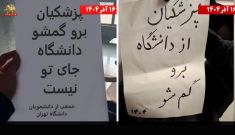 ۱۶ آذر ۱۴۰۴
پزشکیان
برو گمشو
دانشگاه
جای تو
نیست
جمعی از دانشجویان
دانشگاه تهران
۱۶ آذر ۱۴۰۴
پزشکیان
از دانشگاه
برو
گم شو